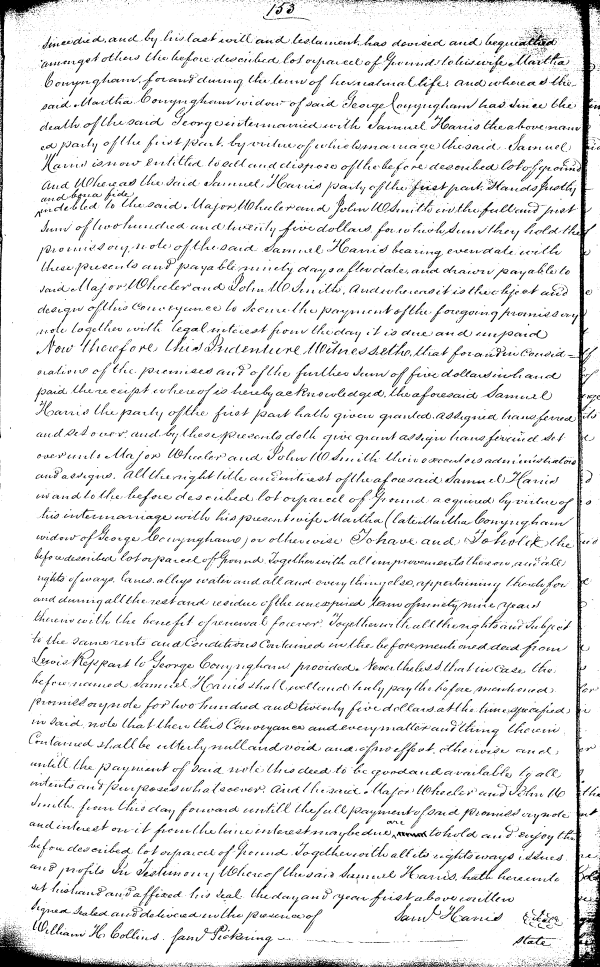 153
since died, and by his last will and testament has devised and bequeathed
amongst others the before described lot or parcel of Ground to his wife Martha
Conyngham, for and during the term of her natural life and whereas the
said Martha Conyngham widow of said George Conyngham has since the
death of the said George intermarried with Samuel Harris the above nam
ed party of the first part by virtue of which marriage the said Samuel
Harris is now entitled to sell and dispose of the before described lot of ground
And Whereas the said Samuel Harris party of the first part Stands Justly
and bona fide
indebted to the said Major Wheeler and John W Smith in the full and just
Sum of two hundred and twenty five dollars for which sum they hold the
promissory note of the said Samuel Harris bearing even date with
these presents and payable ninety days after date, and drawn payable to
said Major Wheeler and John W Smith. And whereas it is the object and
design of this conveyance to secure the payment of the foregoing promissory
note together with legal interest from the day it is due and unpaid
Now Therefore this Indenture Witnesseth, that for and in consid=
erations of the premises and of the further sum of five dollars in hand
paid the receipt whereof is hereby acknowledged, the aforesaid Samuel
Harris the party of the first part hath given granted assigned transferred
and set over and by these presents doth give grant assign transfer and set
over unto Major Wheeler and John W Smith their executors administrators
and assigns. all the right title and interest of the aforesaid Samuel Harris
in and to the before described lot or parcel of Ground acquired by virtue of
his intermarriage with his present wife Martha (late Martha Conyngham
widow of George Conyngham) or otherwise To have and To hold the
before described lot or parcel of Ground Together with all improvements thereon, and all
rights of ways lanes alleys water and all and every thing else appertaining thereto for
and during all the rest and residue of the unexpired term of ninety nine years
therein with the benefit of renewal forever. Together with all the rights and subject
to the same rents and Conditions Contained in the before mentioned deed from
Lewis Reppart to George Conyngham provided Nevertheless that in case the
before named Samuel Harris shall well and truly pay the before mentioned
promissory note for two hundred and twenty five dollars at the time specified
in said note that then this Conveyance and every matter and thing therein
Contained shall be utterly null and void and of no effect, otherwise and
untill the payment of said note this deed to be good and available to all
intents and purposes whatsoever. And the said Major Wheeler and John W
Smith from this day forward untill the full payment of said promissory note
and interest on it from the time interest may be due, are to hold and enjoy the
before described lot or parcel of Ground Together with all its rights ways issues
and profits In Testimony Whereof the said Samuel Harris hath hereunto
set his hand and affixed his seal the day and year first above written
Signed Sealed and delivered in the presence of Saml Harris
William H. Collins. Saml Pickring state